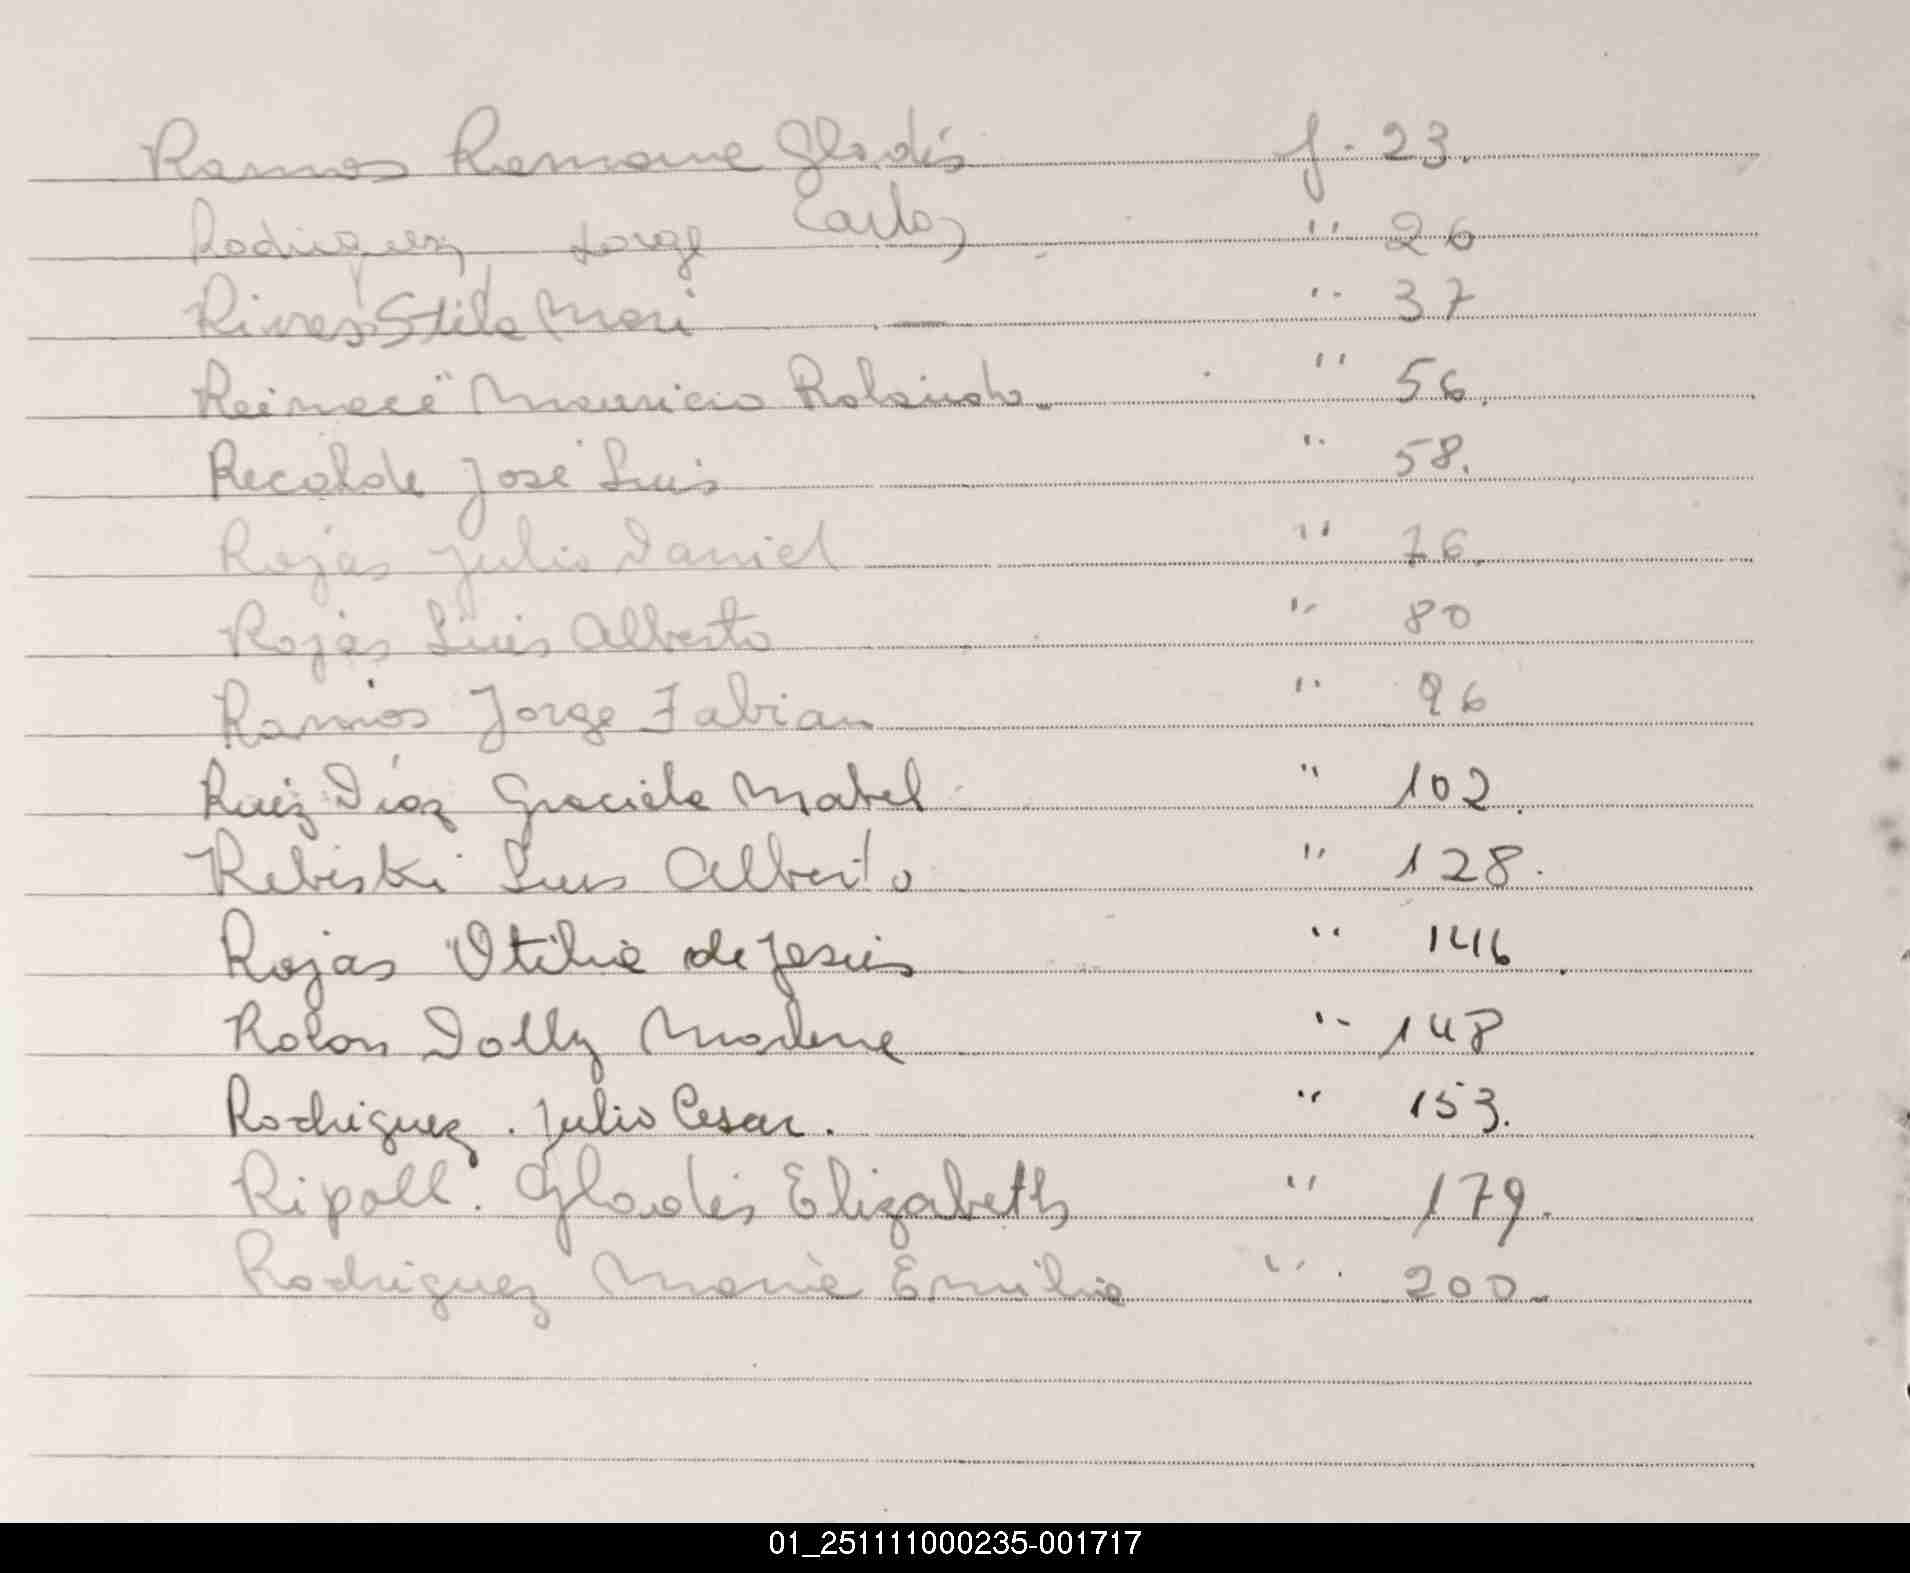 Ramos Ramona Gladis f. 23.
Rodriguez Jorge Carlos " 26
Rivas Stila Mari — " 37
Mauricio Rolando. " 56.
Recalde José Luis " 58.
Rojas Julio Daniel " 76.
Rojas Luis Alberto " 80
Ramos Jorge Fabian " 96
Ruiz Díaz Graciela Mabel " 102.
Rebiski Luis Alberto " 128.
Rojas Otilia de Jesús " 146.
Rolon Dolly Marlene " 148
Rodriguez. Julio Cesar. " 153.
Ripoll. Gladis Elizabeth " 179.
Rodriguez Maria Emilia " 200.
01_251111000235-001717